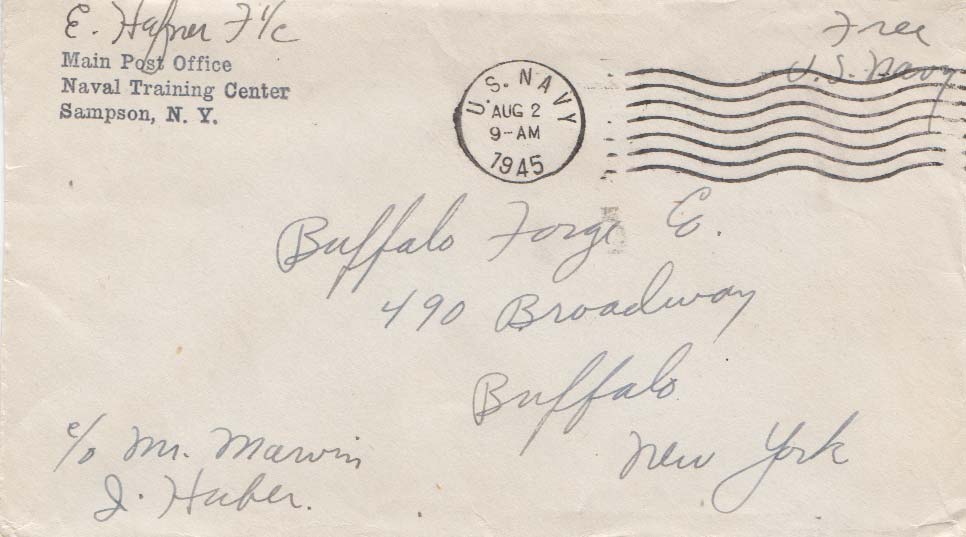 E. Hafner F 1/c
Main Post Office
Naval Training Center
Sampson, N. Y.
U. S. NAVY
AUG 2
9-AM
1945
Free
U. S. Navy
Buffalo Forge Co.
490 Broadway
Buffalo
New York
c/o Mr. Marvin
J. Huber.